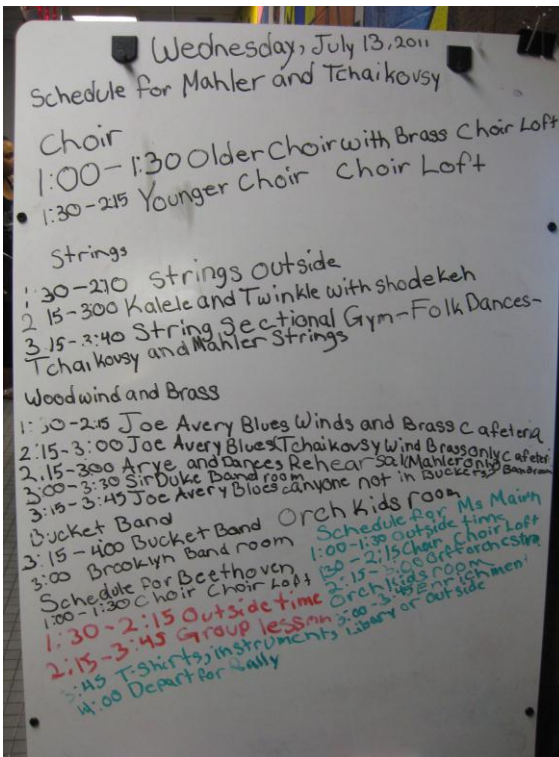 Wednesday, July 13, 2011
Schedule for Mahler and Tchaikovsy
Choir
1:00-1:30 Older Choir with Brass Choir Loft
1:30-2:15 Younger Choir Choir Loft
Strings
1:30-2:10 Strings Outside
2 15-300 Kalele and Twinkle with shodekeh
3 15-3:40 String Sectional Gym-Folk Dances-
Tchaikovsy and Mahler Strings
Woodwind and Brass
1:30-2:15 Joe Avery Blues Winds and Brass Cafeteria
2:15-3:00 Joe Avery Blues (Tchaikovsy Wind Brass only Cafeter
2.15-300 Arye and Dances Rehearsal (Mahler only) Bandroom
3:00-3:30 Sir Duke Band room
3:15-3:45 Joe Avery Blues canyone not in Buckets)
Bucket Band
3:15-400 Bucket Band Orch Kids room
3:00 Brooklyn Band room
Schedule for Beethoven
1:00-1:30 Choir Choir Loft
1:30-2:15 Outside time
2:15-3:45 Group lesson
3:45 T-Shirts, instruments,
4:00 Depart for Rally
Schedule for Ms
1:00-1:30 outside time
1:30-2:15 Choir, Choir Loft
2:15-3:00 Orff orchestra
Orch kids room
3:00-3:45 Enrichment
Libary or outside